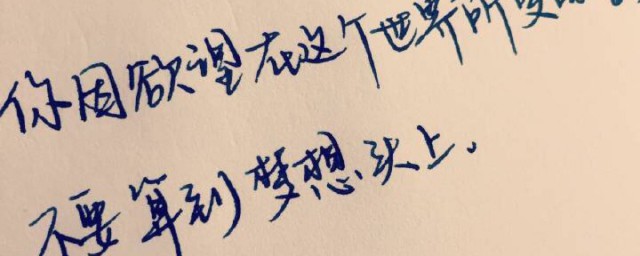 你因欲望在这个世界所受的
不要算到梦想头上。